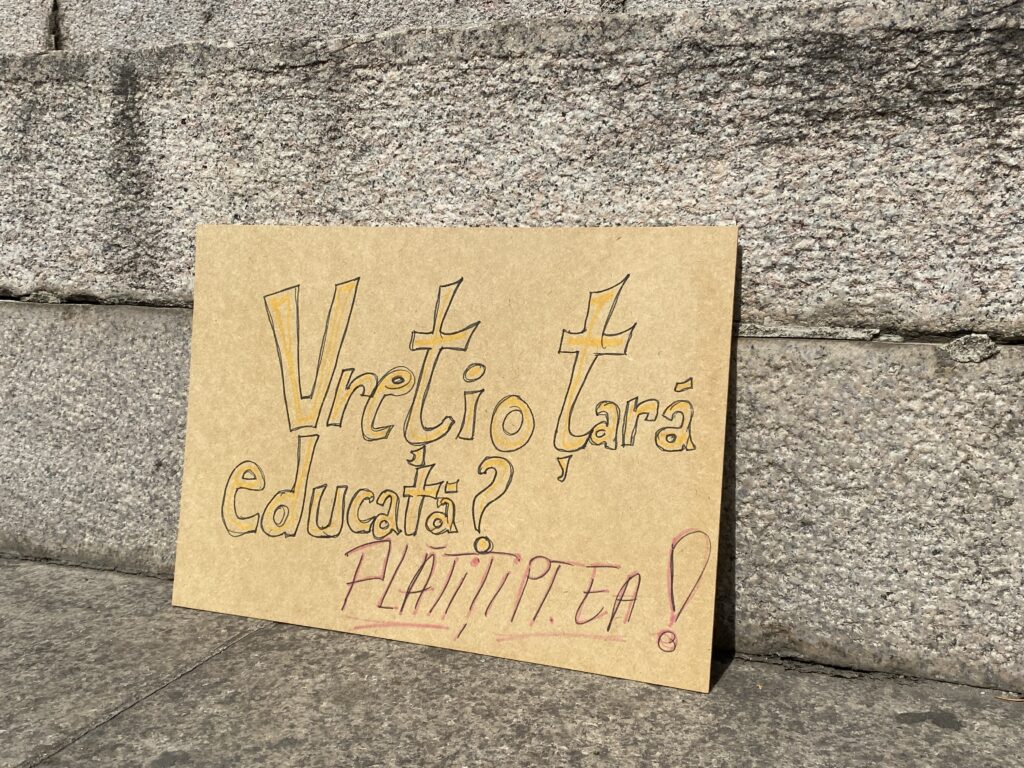 Vreți o țară
educată?
PLĂTIȚI PT. EA!